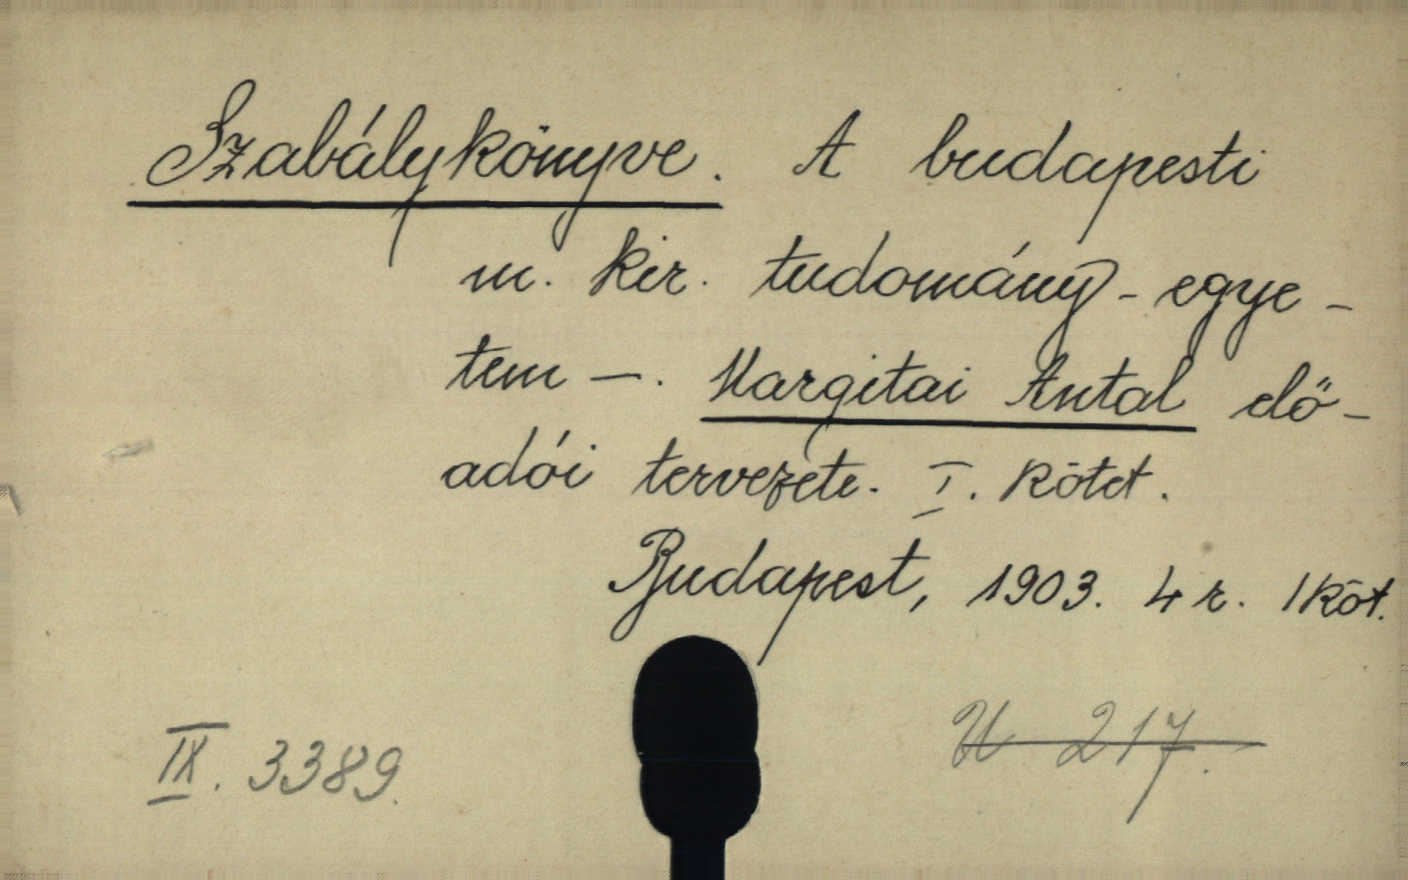 Szabálykönyve. A budapesti
m. kir. tudomány-egye-
tem —. Margitai Antal elő-
adói tervezete. I. kötet.
Budapest, 1903. 4 r. 1 köt.
U 217.
IX. 3389.